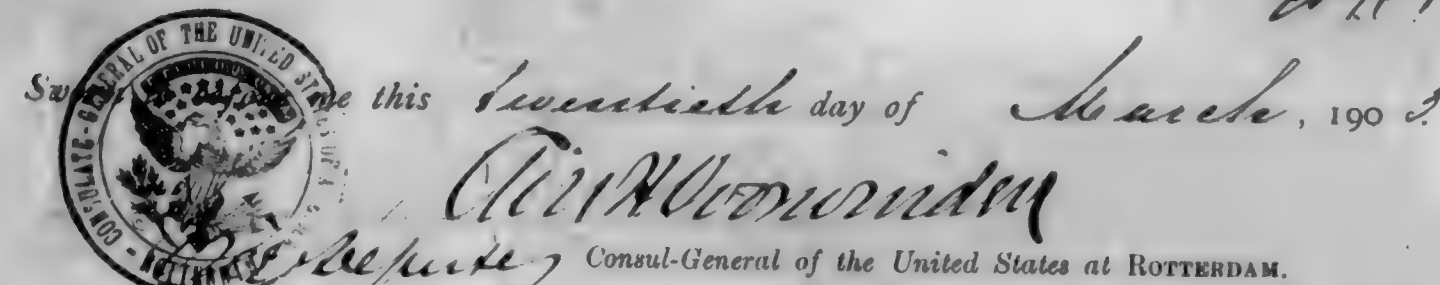 CONSULATE-GENERAL OF THE UNITED STATES OF A
Sw me this twentieth day of March, 1903.
Deputy Consul-General of the United States at ROTTERDAM.